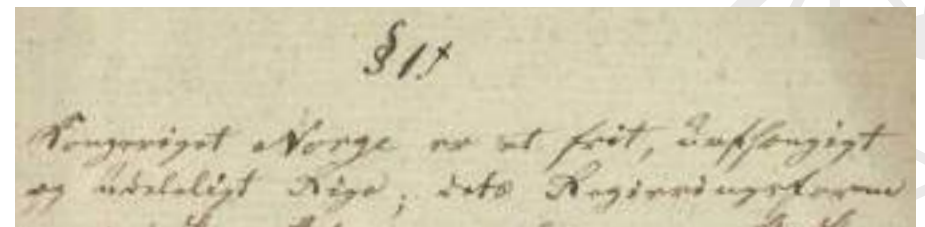 § 1.
Kongeriget Norge er et frit, uafhængigt
og udeleligt Rige; dets Regieringsform